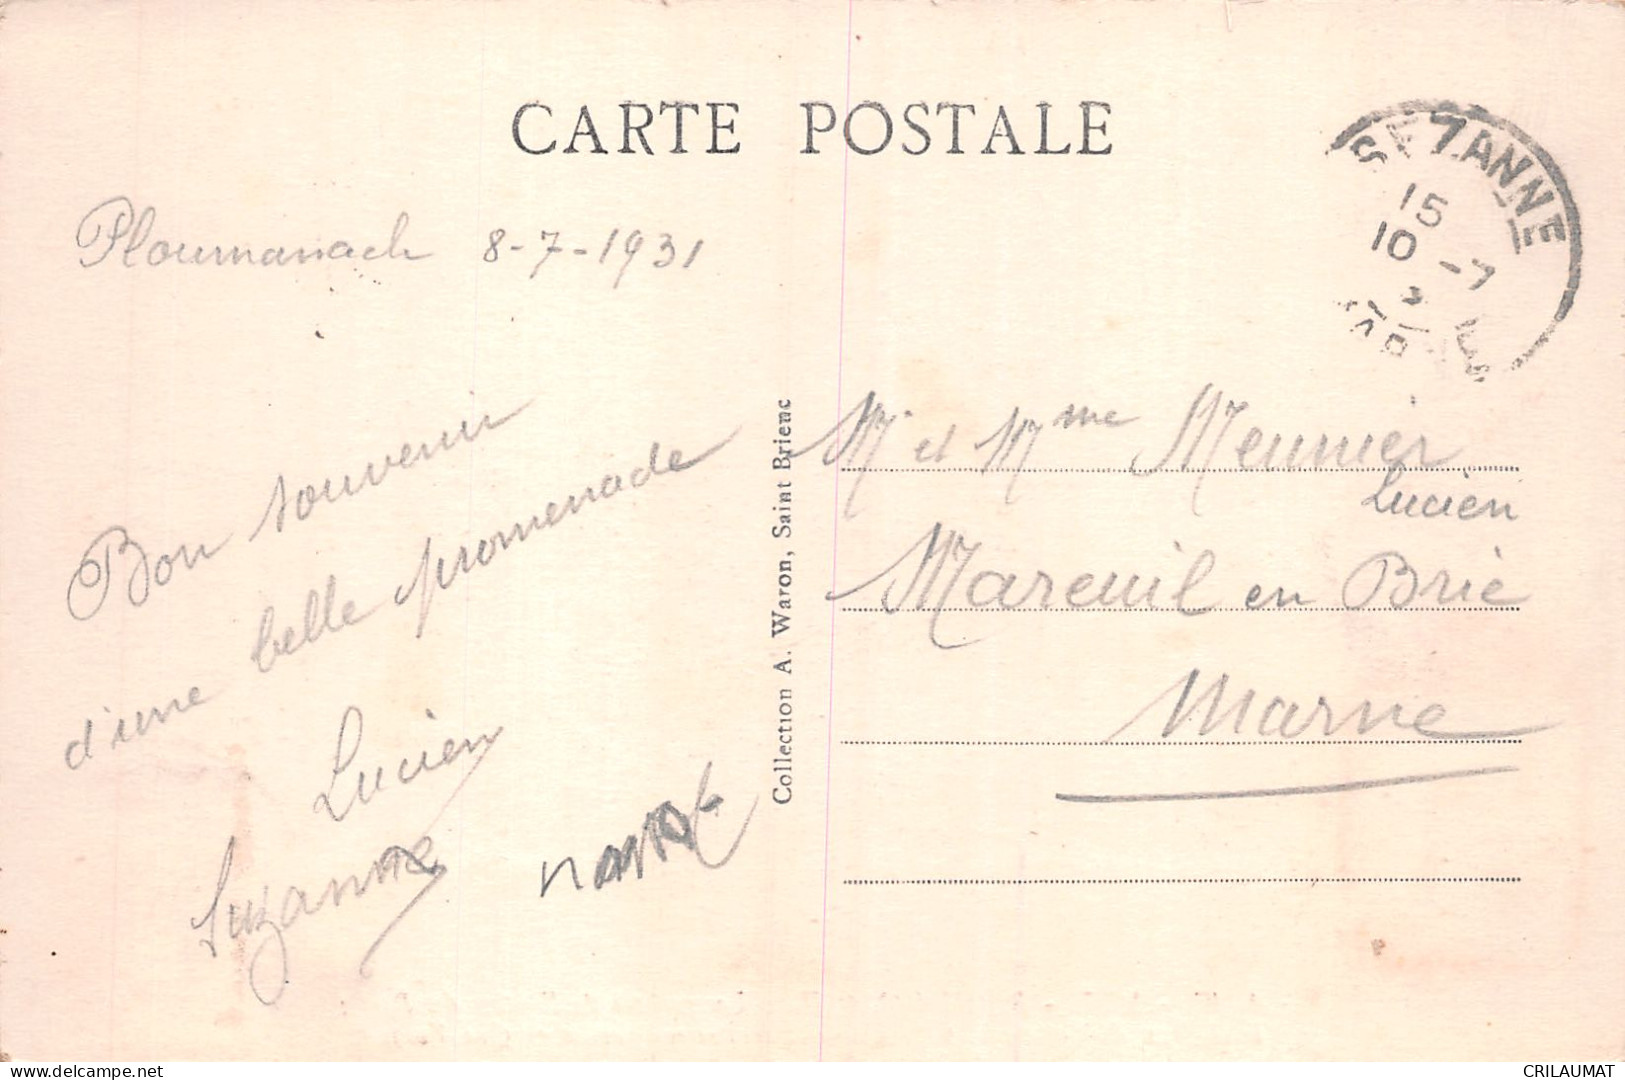 CARTE POSTALE
SEZANNE
15
10 -7
Ploumanach 8-7-1931
Bon souvenir
d'une belle promenade
Lucien
Suzanne
Collection A. Waron, Saint Brieuc
M et Mme Meunier
Lucien
Mareuil en Brie
Marne
www.delcampe.net
CRILAUMAT